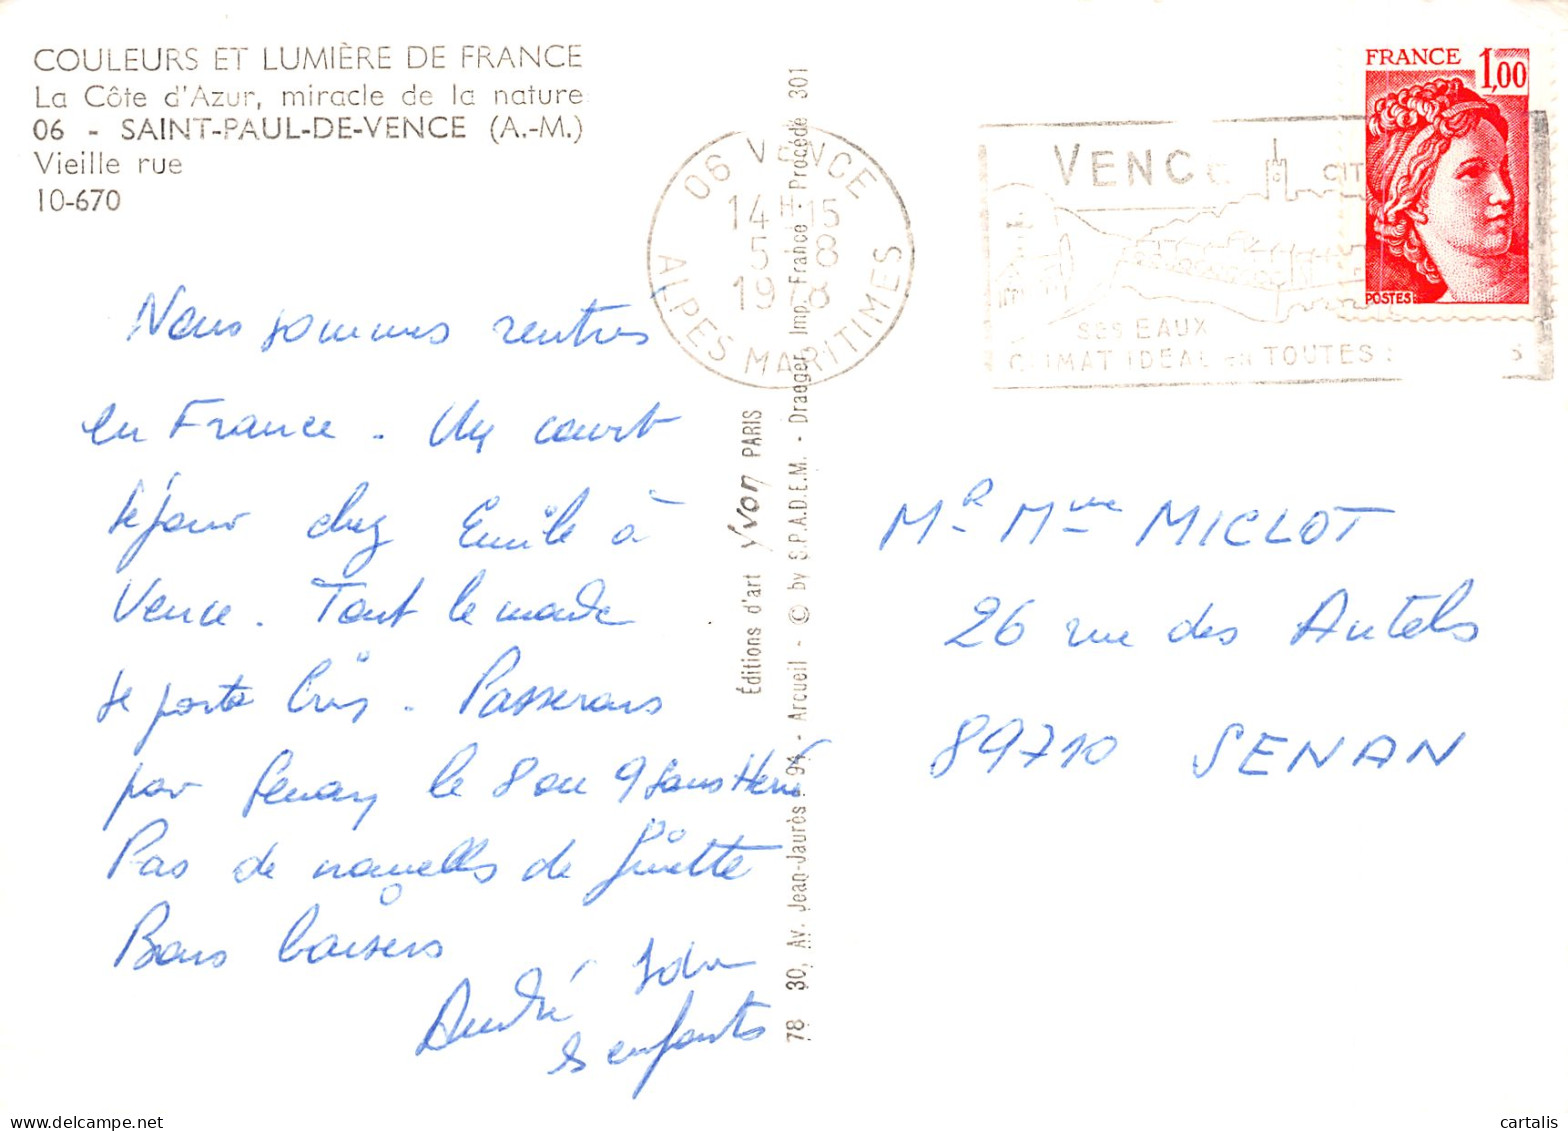 COULEURS ET LUMIÈRE DE FRANCE
La Côte d'Azur, miracle de la nature
06 - SAINT-PAUL-DE-VENCE (A.-M.)
Vieille rue
10-670
Nous sommes rentrés
en France. Un court
séjour chez Emile à
Vence. Tout le monde
se porte bien. Passerons
par Senan le 8 ou 9 sans
Pas de nouvelles de Ginette
Bons baisers
André
& enfants
Éditions d'art Yvon PARIS
78 30, Av. Jean-Jaurès - 94 - Arcueil - © by S.P.A.D.E.M. - Draeger, Imp. France - Procédé 301
06 VENCE
14H15
5-8
1978
ALPES MARITIMES
VENCE CIT
SES EAUX
CLIMAT IDEAL en TOUTES S
FRANCE 1,00
POSTES
Mr Mme MICLOT
26 rue des Autels
89710 SENAN
cartalis